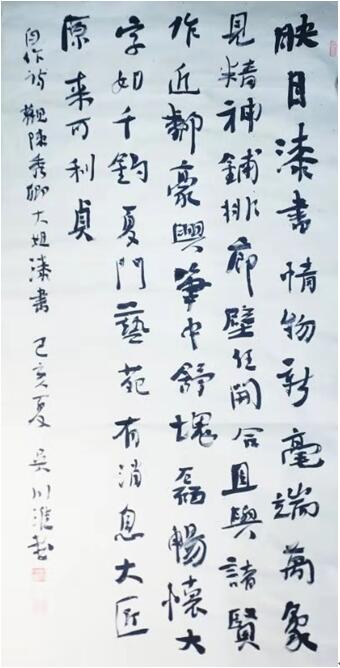 映目漆書情物新毫端萬象
見精神鋪排廊壁任開合且與諸賢
作近鄰豪興筆中舒塊磊暢懷大
字如千鈞夏門藝苑有消息大匠
原来可利貞
自作詩觀陳秀卿大姐漆書 己亥夏 吳川淮書